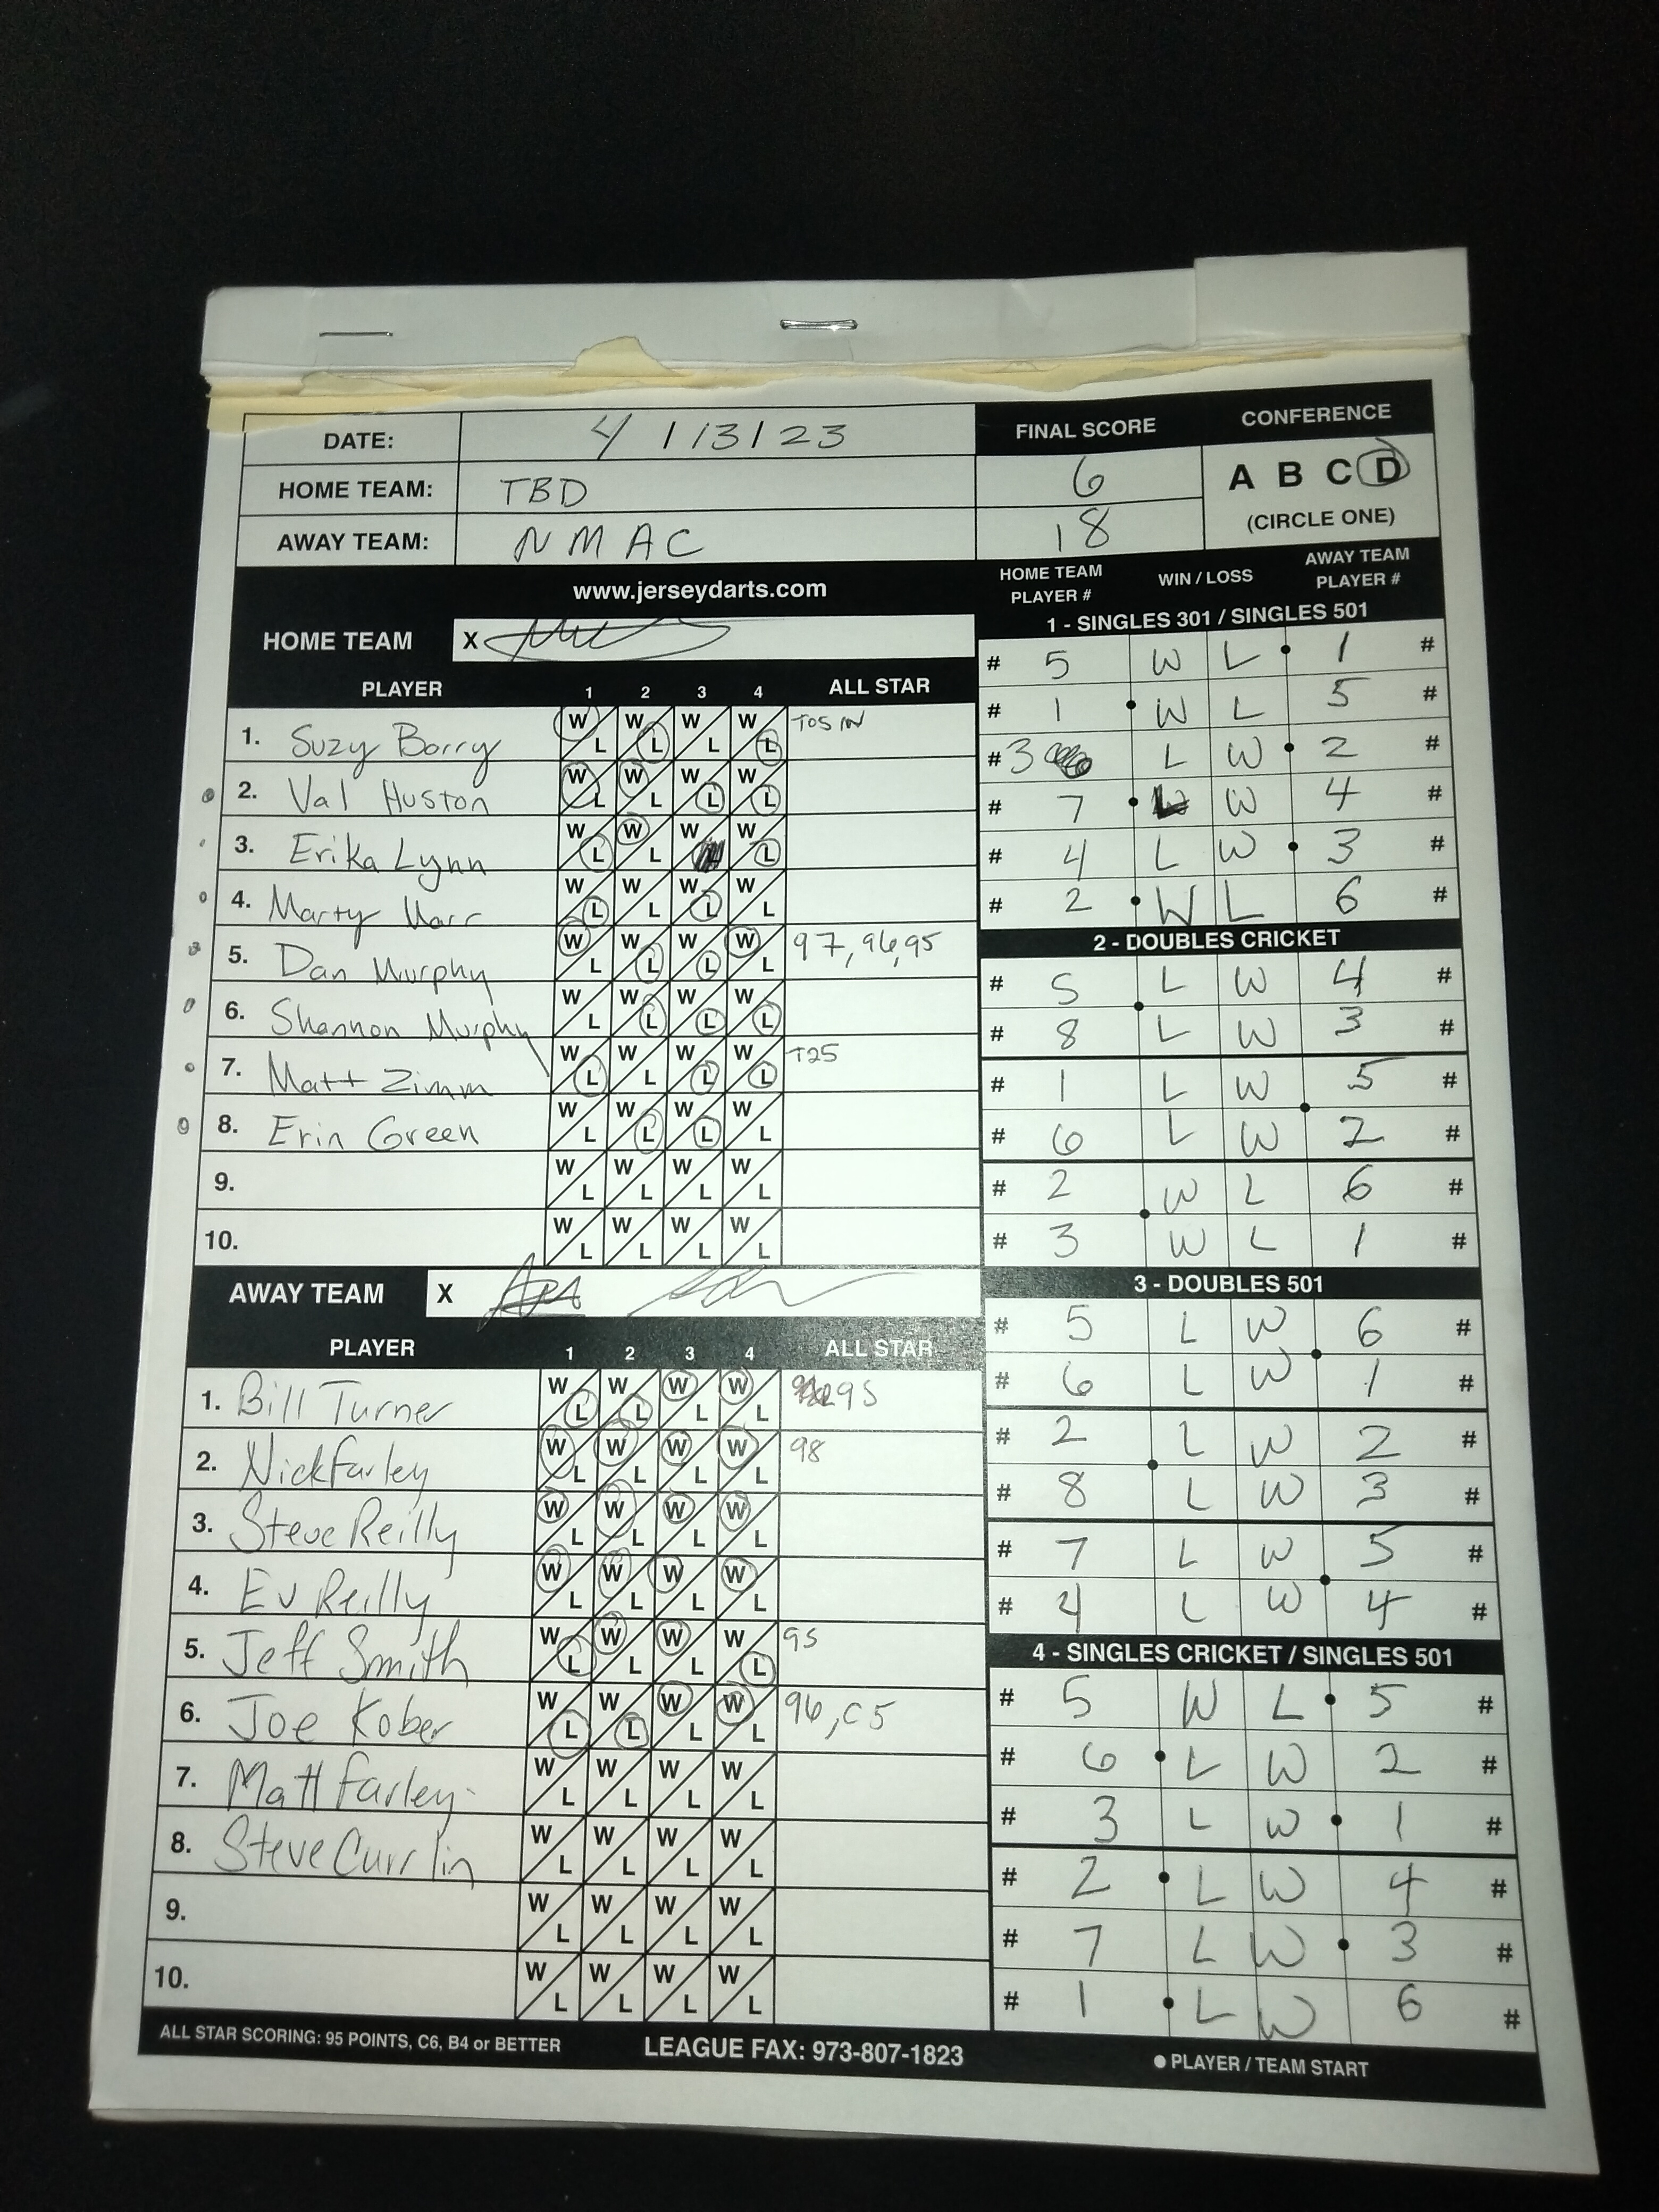 DATE: 4/13/23
HOME TEAM: TBD
AWAY TEAM: NMAC
FINAL SCORE
6
18
CONFERENCE
A B C D
(CIRCLE ONE)
www.jerseydarts.com
HOME TEAM X
PLAYER 1 2 3 4 ALL STAR
1. Suzy Barry W L W L W L W L TOS IN
2. Val Huston W L W L W L W L
3. Erika Lynn W L W L W W L
4. Marty W L W L W L W L
5. Dan Murphy W L W L W L W L 97, 96, 95
6. Shannon Murphy W L W L W L W L
7. Matt Zimm W L W L W L W L T25
8. Erin Green W L W L W L W L
9. W L W L W L W L
10. W L W L W L W L
AWAY TEAM X
PLAYER 1 2 3 4 ALL STAR
1. Bill Turner W L W L W L W L 95
2. Nick Farley W L W L W L W L 98
3. Steve Reilly W L W L W L W L
4. Ev Reilly W L W L W L W L
5. Jeff Smith W L W L W L W L 95
6. Joe Kober W L W L W L W L 96, C5
7. Matt Farley W L W L W L W L
8. Steve Currlin W L W L W L W L
9. W L W L W L W L
10. W L W L W L W L
HOME TEAM PLAYER # WIN / LOSS AWAY TEAM PLAYER #
1 - SINGLES 301 / SINGLES 501
# 5 W L 1 #
# 1 W L 5 #
# 3 L W 2 #
# 7 L W 4 #
# 4 L W 3 #
# 2 W L 6 #
2 - DOUBLES CRICKET
# 5 L W 4 #
# 8 L W 3 #
# 1 L W 5 #
# 6 L W 2 #
# 2 W L 6 #
# 3 W L 1 #
3 - DOUBLES 501
# 5 L W 6 #
# 6 L W 1 #
# 2 L W 2 #
# 8 L W 3 #
# 7 L W 5 #
# 4 L W 4 #
4 - SINGLES CRICKET / SINGLES 501
# 5 W L 5 #
# 6 L W 2 #
# 3 L W 1 #
# 2 L W 4 #
# 7 L W 3 #
# 1 L W 6 #
ALL STAR SCORING: 95 POINTS, C6, B4 or BETTER
LEAGUE FAX: 973-807-1823
● PLAYER / TEAM START